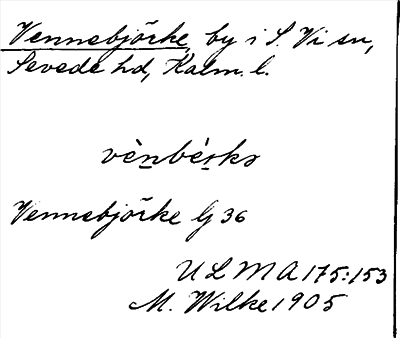 Vennebjörke, by i S. Vi sn,
Sevede hd, Kalm. l.
vènbèrkə
Vennebjörke G 36
ULMA 175:153
M. Wilke 1905